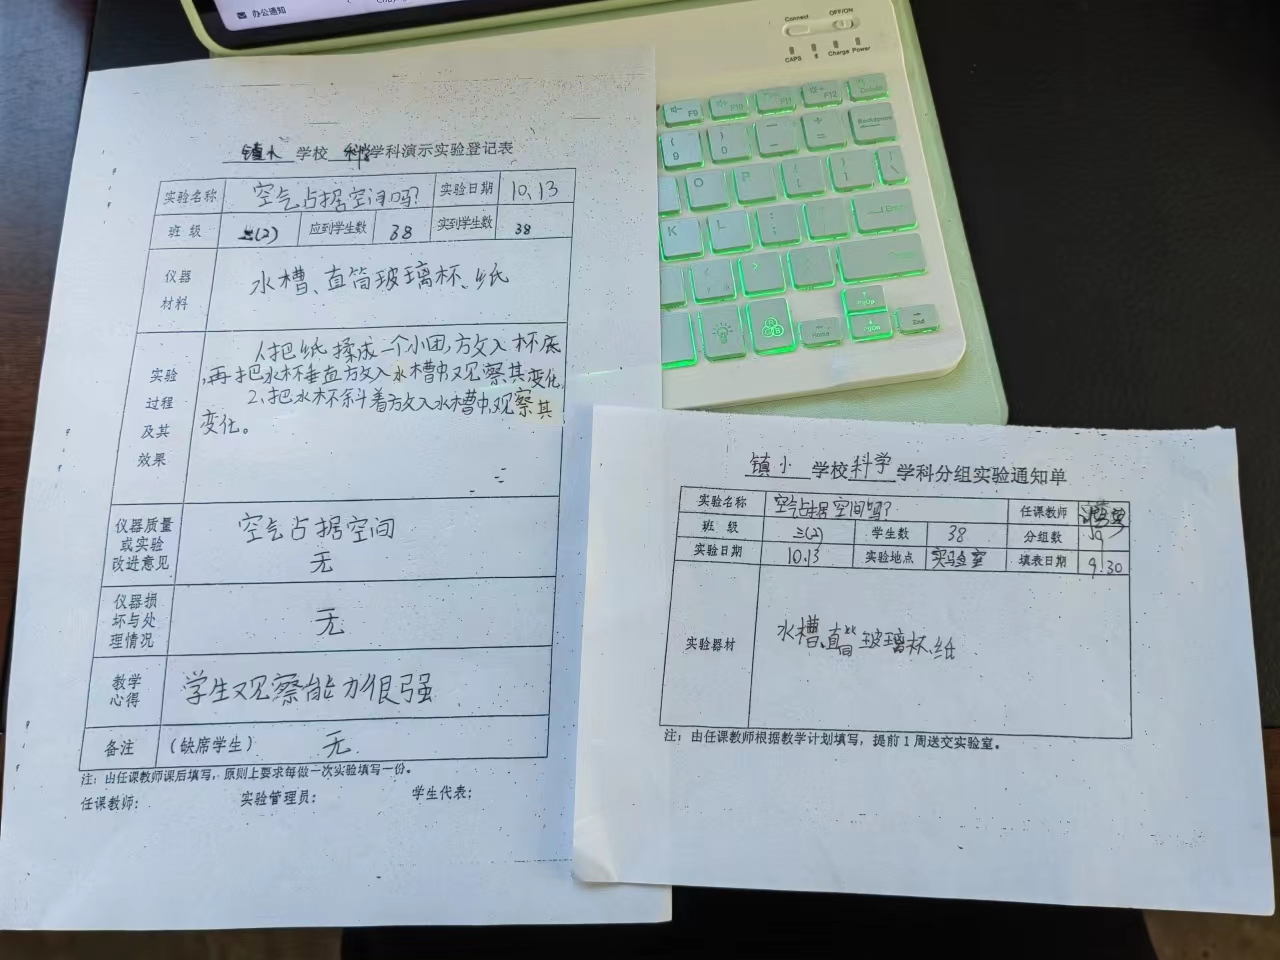 办公通知
Connect OFF/ON
CAPS Charge Power
F9 F10 F11 F12 Delete
( 9 ) 0 — + = Backspace
O P { [ } ] \
K L : ; Enter
>
PgUp
Home PgDn End
镇小 学校 科学 学科演示实验登记表
实验名称 空气占据空间吗? 实验日期 10.13
班 级 三(2) 应到学生数 38 实到学生数 38
仪器材料 水槽、直筒玻璃杯、纸
实验过程及其效果
1、把纸揉成一个小团,放入杯底
,再把水杯垂直放入水槽中观察其变化,
2、把水杯斜着放入水槽中,观察其
变化。
仪器质量或实验改进意见 空气占据空间
无
仪器损坏与处理情况 无
教学心得 学生观察能力很强
备注 (缺席学生) 无
注:由任课教师课后填写,原则上要求每做一次实验填写一份。
任课教师: 实验管理员: 学生代表:
镇小 学校 科学 学科分组实验通知单
实验名称 空气占据空间吗? 任课教师
班 级 三(2) 学生数 38 分组数 19
实验日期 10.13 实验地点 实验室 填表日期 9.30
实验器材 水槽、直筒玻璃杯、纸
注:由任课教师根据教学计划填写,提前1周送交实验室。